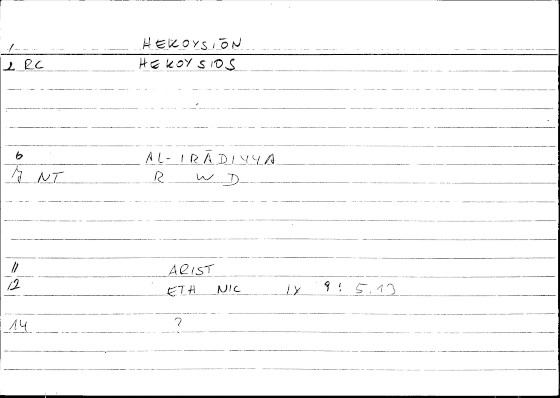 1 HEKOYSIŌN
2 RC HEKOYSIOS
6 AL-IRĀDIYYA
7 NT R W D
11 ARIST
12 ETH NIC IX 9: 5.13
14 ?